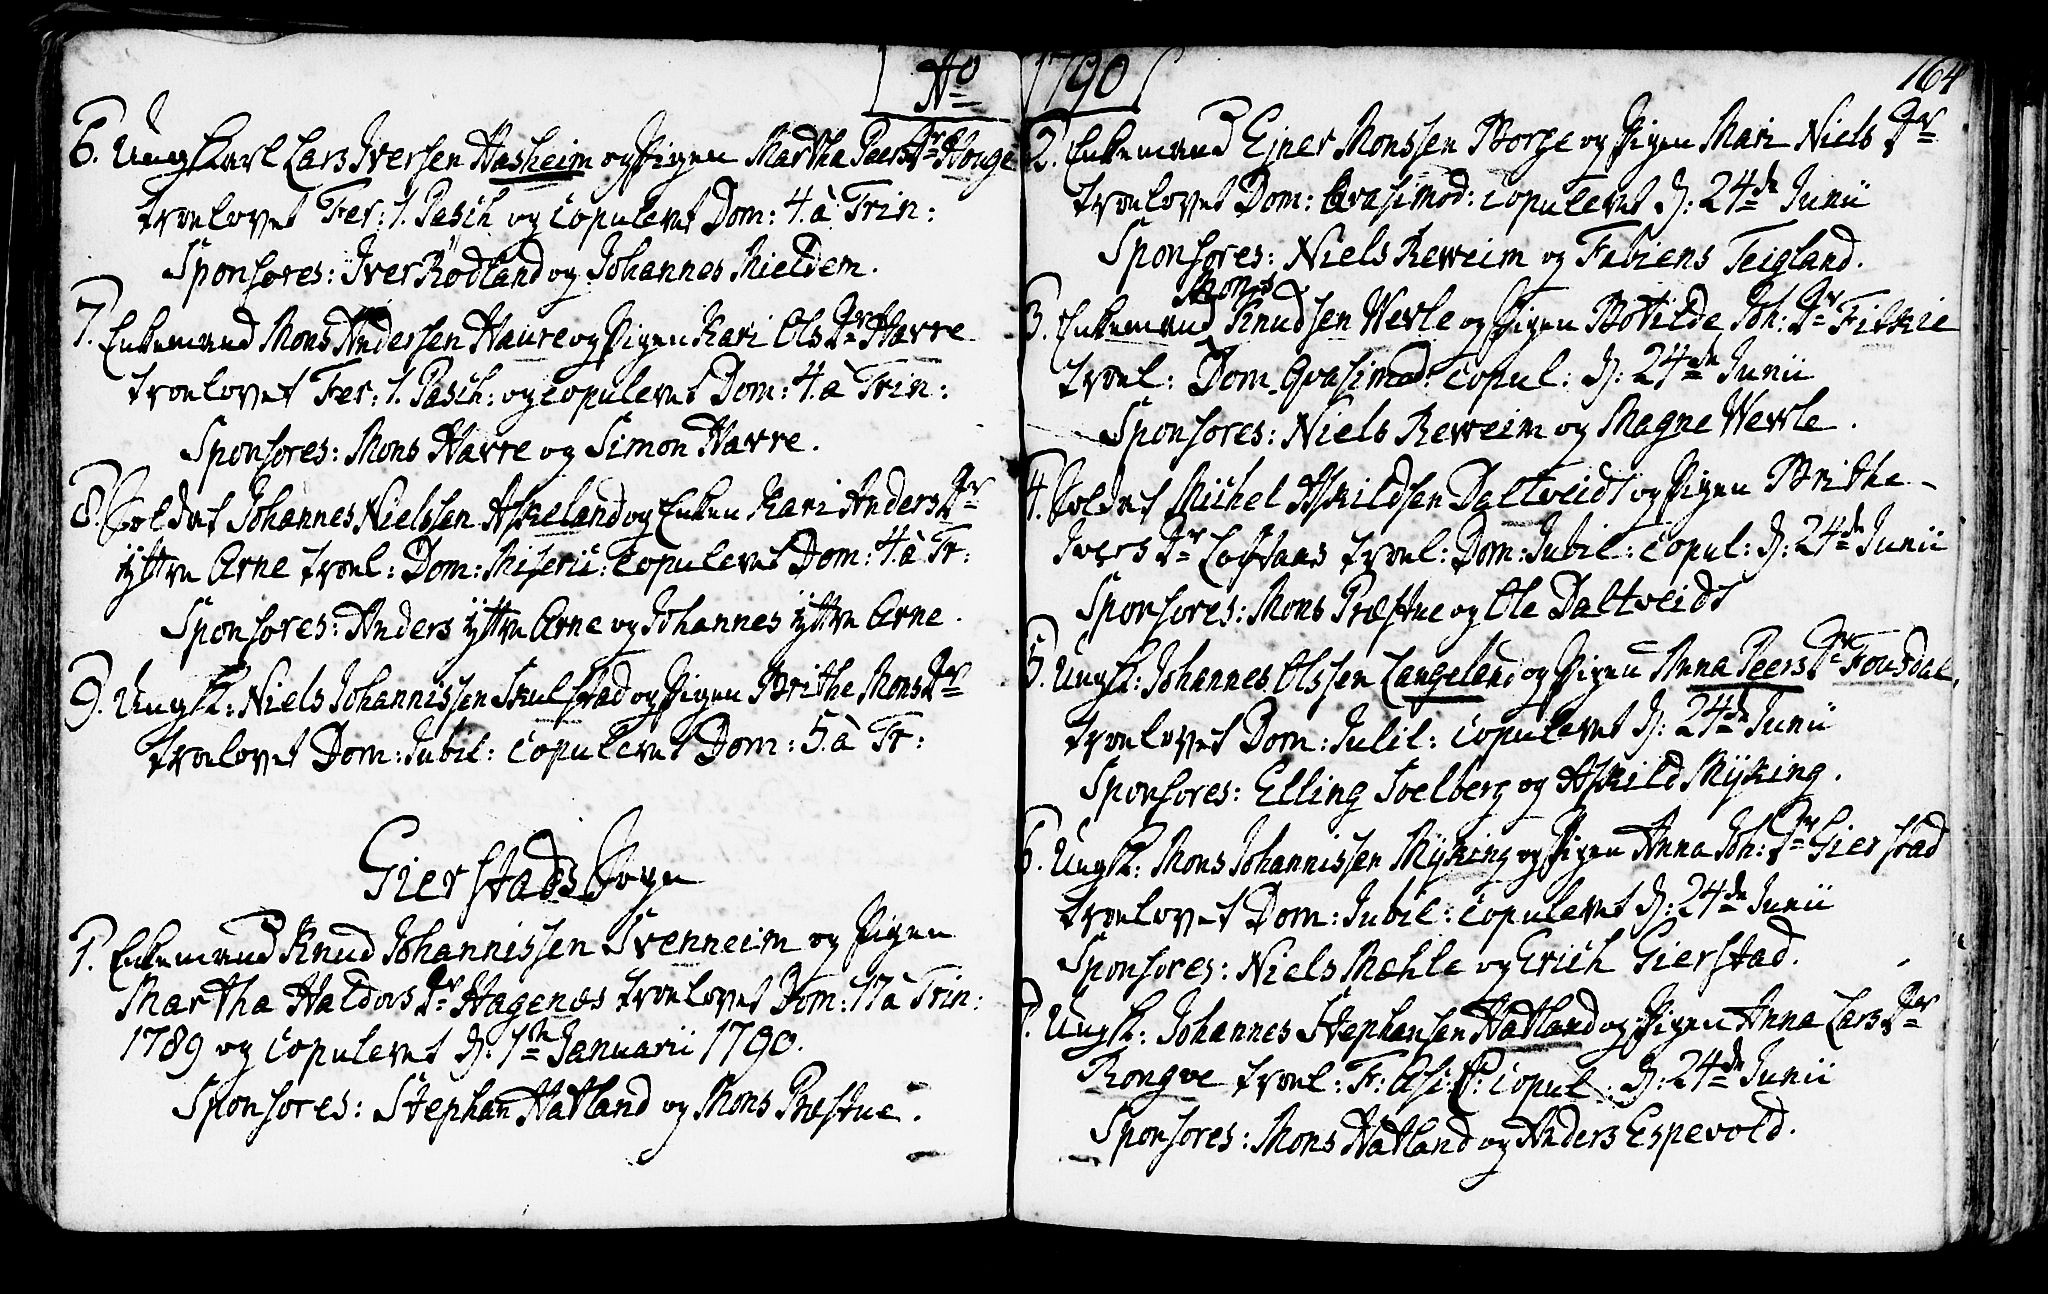 Ao 1790
164
6. Ungkarl Lars Iversen Hasheim og Pigen Martha Peers Dr Houge
troelovet Fer: 1. Pasch og copuleret Dom: 4. à Trin:
Sponsores: Iver Rödland og Johannes Mieldem.
7. Enkemand Mons Andersen Haure og Pigen Kari Ols Dr Havre
troelovet Fer: 1. Pasch: og copuleret Dom: 4. à Trin:
Sponsores: Mons Havre og Simon Havre.
8. Soldat Johannes Nielssen Askeland og Enken Kari Anders Dr
ÿttre Arne troel: Dom: Miserii: copuleret Dom: 4. à Tr:
Sponsores: Anders ÿttre Arne og Johannes ÿttre Arne.
9. Ungk: Niels Johannissen Skulstad og Pigen Brithe Mons Dr
troelovet Dom: Jubil: copuleret Dom: 5. à Tr:
Gierstads Sogn
1. Enkemand Knud Johannissen Svenneim og Pigen
Martha Haldors Dr Hagenæs troelovet Dom: 17 à Trin:
1789 og copuleret d: 1te Januarii 1790.
Sponsores: Stephan Hatland og Mons Præstue.
2. Enkemand Ejner Monssen Borge og Pigen Mari Niels Dr
troelovet Dom: Qvasimod: copuleret d: 24de Junii
Sponsores: Niels Reweim og Fabiens Teigland.
Mons
3. Enkemand Knudsen Wevle og Pigen Botilde Joh: Dr Fiskie
troel: Dom. Qvasimod: copul: d: 24de Junii
Sponsores: Niels Reweim og Magne Wevle.
4. Soldat Michel Askildsen Daltveidt og Pigen Brithe
Ivers Dr Loftaas troel: Dom: Jubil: copul: d: 24de Junii
Sponsores: Mons Præstue og Ole Daltveidt
5. Ungk: Johannes Olssen Langeland og Pigen Anna Peers Dr Fousdal.
troelovet Dom: Jubil: copuleret d: 24de Junii
Sponsores: Elling Soelberg og Askild Mÿking.
6. Ungk: Mons Johannissen Mÿking og Pigen Anna Joh: Dr Gierstad
troelovet Dom: Jubil: copuleret d: 24de Junii
Sponsores: Niels Mæhle og Erich Gierstad.
7. Ungk: Johannes Stephansen Hatland og Pigen Anna Lars Dr
Rongve troel: copul: d: 24de Junii
Sponsores: Mons Hatland og Anders Espevold.